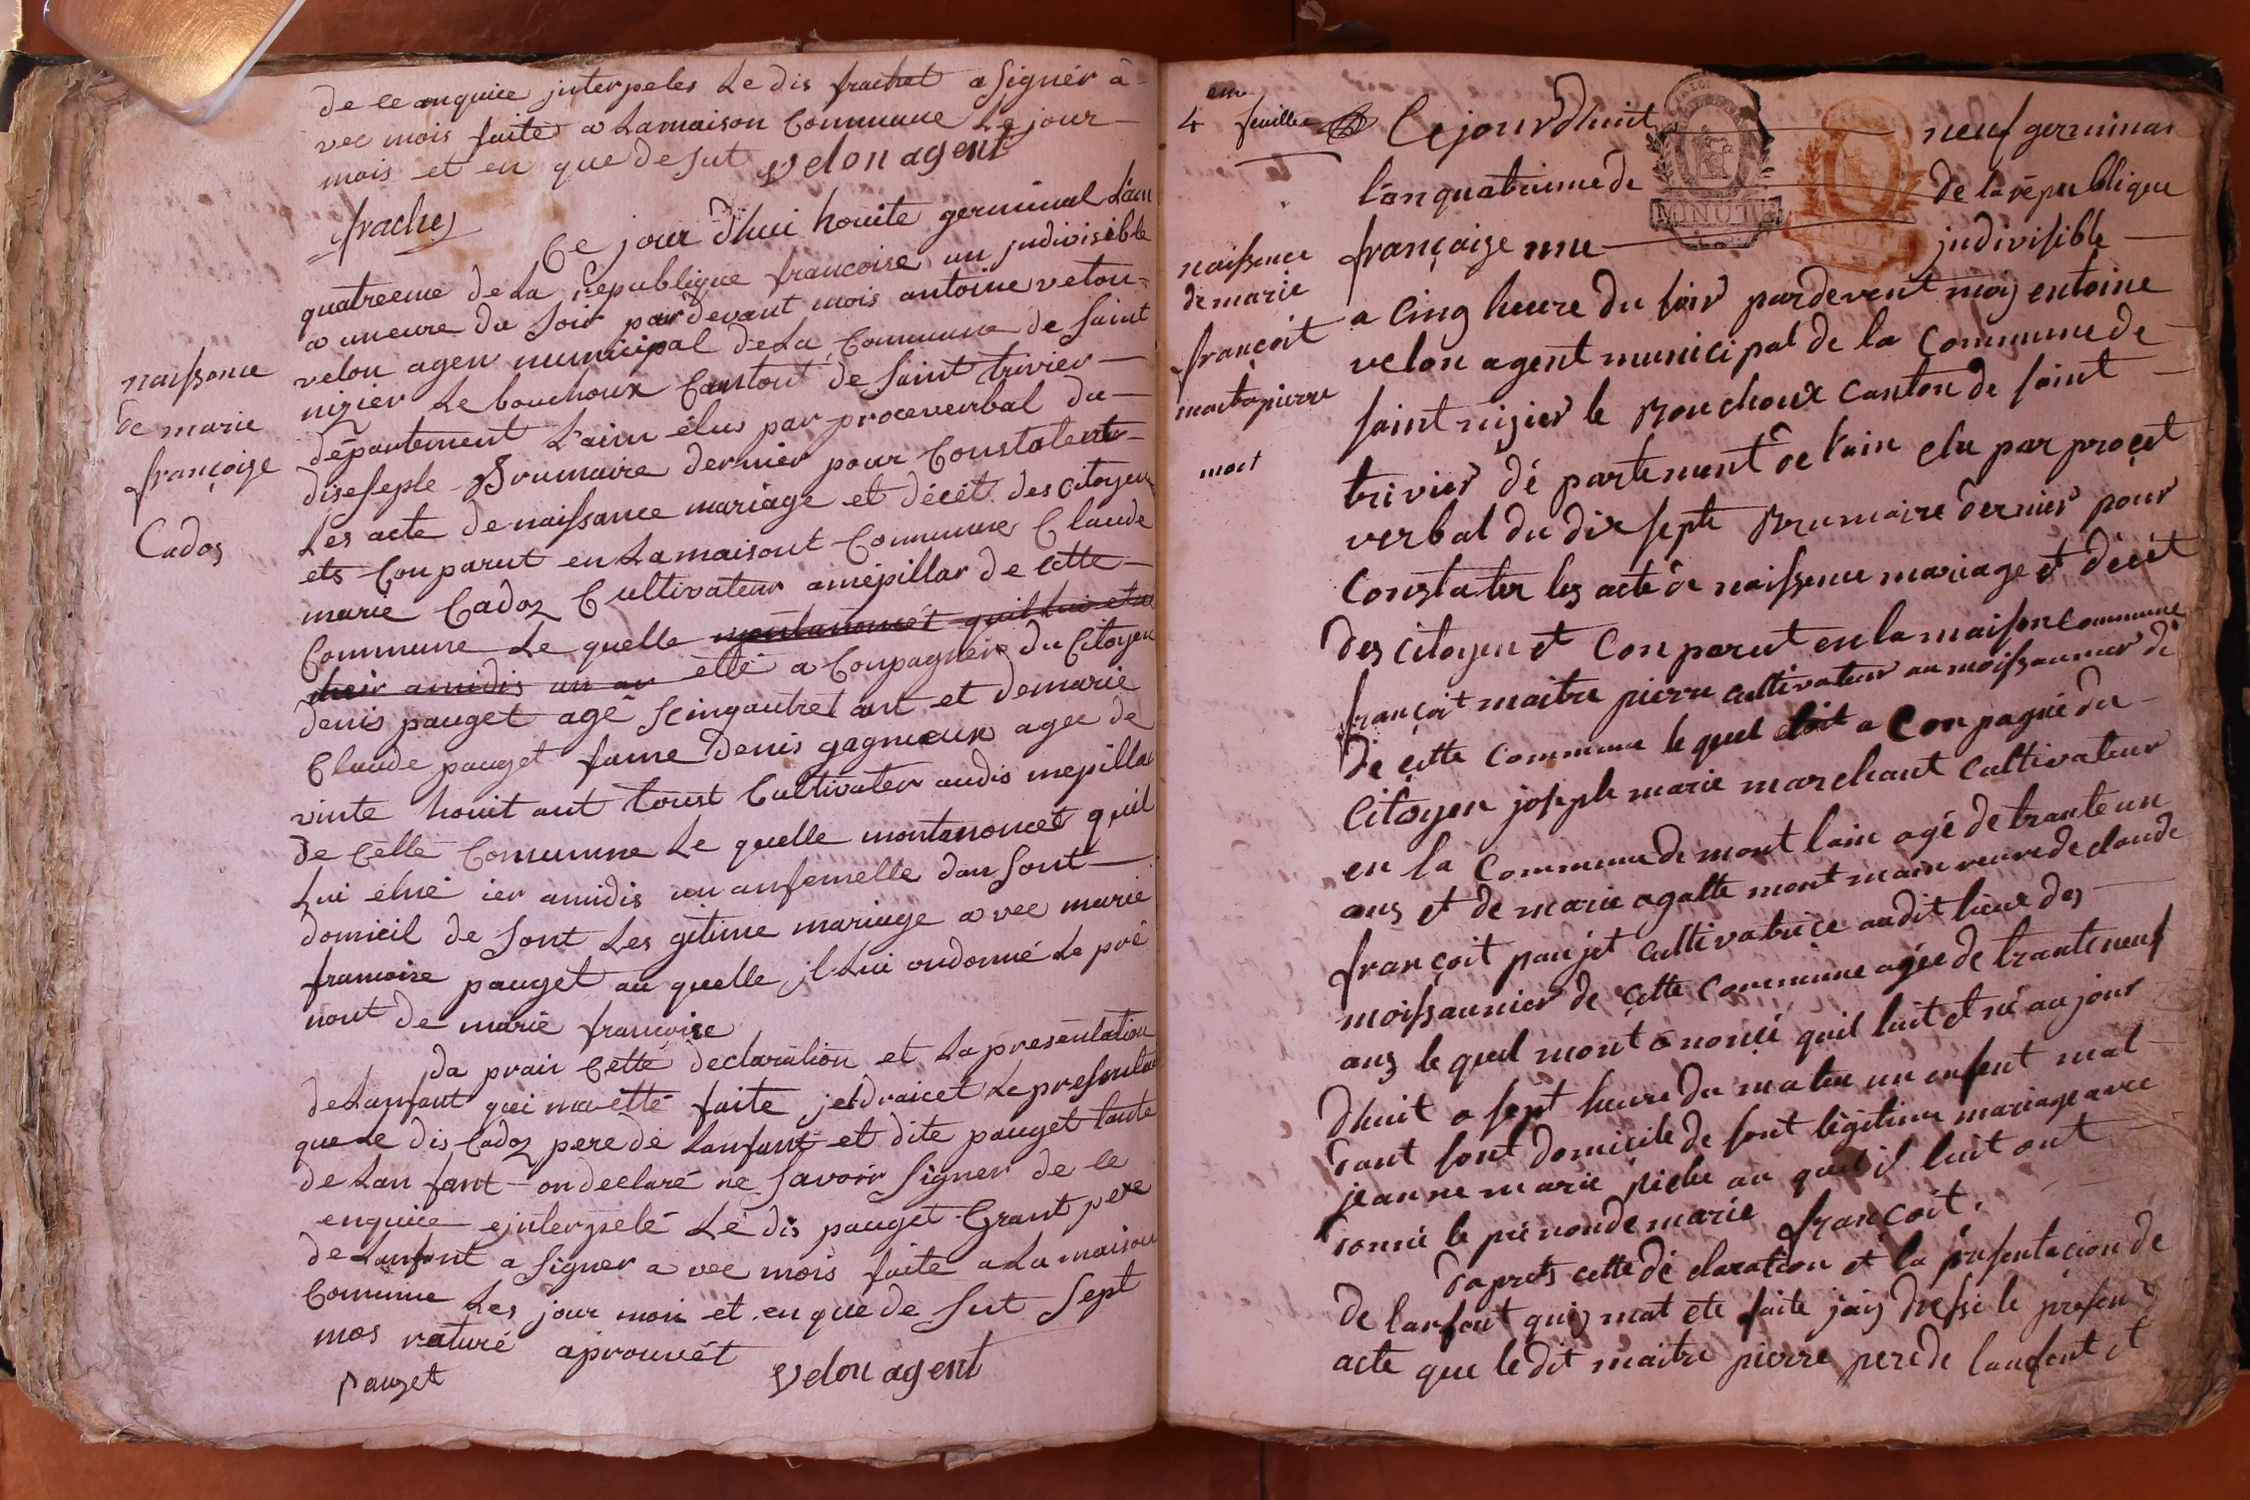 de ce anquice jnterpeles Le dis frachet a signér à
vec mois faite a Lamaison Commune Le jour
mois et en que desut velon agent
frachet
Ce jour d'hui houite germinal L'an
quatreeme de La republique francoise un judivisible
a uneure du soir pardevant mois antoine veton
velon agen municipal de La Commune de saint
nizier Le bouchoux Cantont de saint trivier
département L'ain élus par proceverbal du
diseseple Brumaire dernier pour Constalent
Les acte de naissance mariage et décét des citoyen
ets Conparut en Lamaisont Commune Claude
marie Cadoz Cultivateur amépillar de cette
Commune Le quelle montanoncét quil Lui etné
heir amidis un an ellé a Conpagnére du Citoyen
denis pauget agé scinqautre ant et demarie
Claude pauget fame denis gagneux agee de
vinte houit ant toust Cultivater audis mepillar
de Cette Comunne Le quelle montanoncét quil
Lui etné ier amidis un anfemelle dan sont
domicil de sont Les gitime mariage avec marie
francoise pauget au quelle jl Lui ondonné Le pré
nont de marie francoise
da prair Cette declaration et La présentation
de Lanfant qui ma etté faite jeidraicet Le présentac
que Le dis Cadoz pere de Lanfant et dite pauget tante
de Lan fant on declaré ne savoir signer de ce
enquice ejnterpelé Le dis pauget Grant pere
de Lanfant a signer a vec mois faite a La maison
Comunne Les jour mois et en que de sut sept
mos raturé aprouvét
pauget velon agent
naissance
de marie
françoise
Cadoz
4 eme feuillet
Cejourdhuit neuf germinal
l'an quatrieme de de la république
françaize une judivisible
a cinq heure du soir pardevent moy entoine
velon agent municipal de la commune de
saint nizier le Bouchoux canton de saint
trivier dé partement de l'ain elu par procet
verbal du dix septe Brumaire dernier pour
constater les acte de naissence mariage et décét
des citoyen et Conparut en la maison commune
françoit maitre pierre cultivateur au moissaunier de
de cette commune le quel etoit a Conpagnie du
Citoyen joseph marie marchant cultivateur
en la Commune de mont lain agé de trante un
ans et de marie agatte mont main veuve de claude
françoit paujet cultivatrice audit lieux des
moissaunier de cette commune agée de trante neuf
ans le quel mont énoncé quil luit et né aujour
dhuit a sept heure du matin un enfent mal
dant sont domicile de sont légitime mariage avec
jeanne marie piche au quel il luit ont
donné le pré nondemarie françoit.
daprets cette dé claration et la présentacion de
de lanfant quiz mat ete faite jaiz dressé le présen
acte que le dit maitre pierre pere de lanfent et
naissence
de marie
françoit
maitre pierre
mort
MINUTE